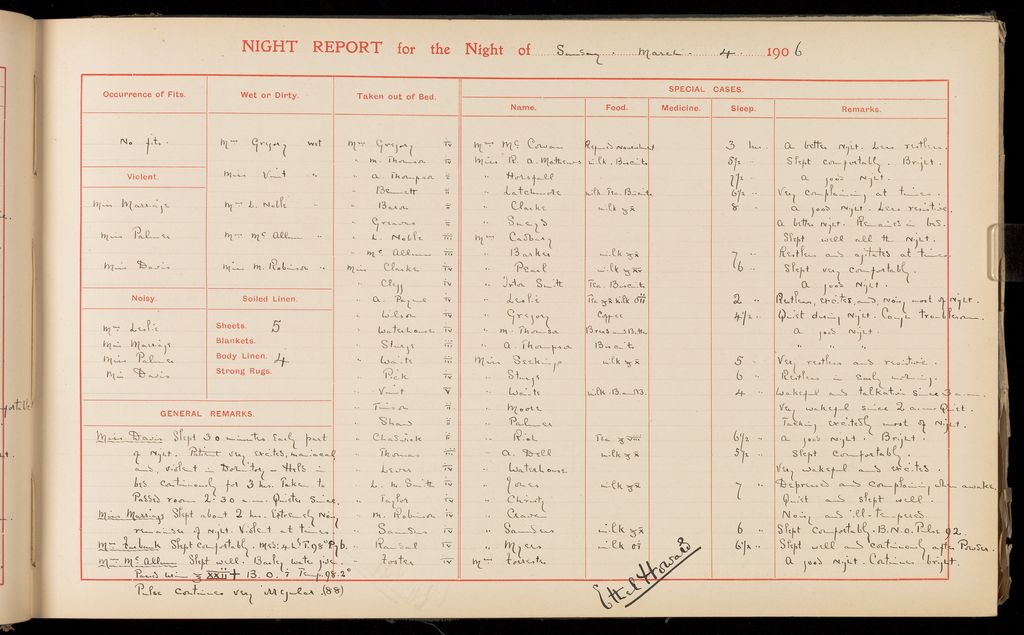 NIGHT REPORT for the Night of Sunday March 4 1906
Occurrence of Fits.
No fits.
Violent.
Miss Marriage
Miss Palmer
Miss Davis
Noisy.
Mrs Leslie
Miss Marriage
Miss Palmer
Miss Davis
Wet or Dirty.
Mrs Gregory wet
Miss Vint "
Mrs L. Noble "
Mrs McAllum "
Miss M. Robinson "
Soiled Linen.
Sheets. 5
Blankets.
Body Linen. 4
Strong Rugs.
GENERAL REMARKS.
Miss Davis Slept 30 minutes early part
of night. Patient very excited, maniacal
and violent in Dormitory - Held in
bed continuously for 3 hrs. Taken to
Padded room 2.30 a.m. Quieter since.
Miss Marriage Slept about 2 hrs. Extremely noisy
remainder of night. Violent at times.
Slept comfortably.
Mrs McAllum Slept well. Barley water given.
Passed urine B.O. Temp. 98.2°
Pulse continues very irregular (88)
Taken out of Bed.
Mrs Gregory iv
" M. Thomson iv
" A. Thompson ii
" Bennett ii
" Bacon iv
" Greaves ii
" L. Noble iii
" McAllum iii
Miss Clarke iv
" Clegg iv
" A. Payne iv
" Wilson iv
" Waterhouse iv
" Sturge iii
" Waite iii
" Pick iv
" Vint v
" Tuison ii
" Shaw ii
" Chadwick ii
" Thomas iii
" Lever iv
" L. M. Smith iv
" Taylor iv
" M. Robinson iv
" Saunders iv
" Randal iv
" Foster iv
SPECIAL CASES.
Name. Food. Medicine. Sleep. Remarks.
Mrs McCowan Refused Nourishment 3 hrs. A better night. Less restless.
Miss R. A. Mathews milk. Biscuits 5½ " Slept comfortably. Bright.
" Horsfall 7½ " A good night.
" Latchmore milk. Tea. Biscuits 6½ " Very complaining at times.
" Clarke milk 8 " A good night. Less resistive.
" A better night. Remained in bed.
Mrs Cadbury Slept well all the night.
" Barker milk 7 " Restless and agitated at times
" Pearl milk 6 " Slept very comfortably.
" Smith Tea. Biscuits A good night.
" Leslie Tea & milk 2 " Restless, excited, and noisy most of night.
" Gregory Coffee 4½ " Quiet during night. Cough troublesome.
" M. Thomson Bread and Butter A good night.
" A. Thompson Biscuits " " "
Miss Seekings milk 5 " Very restless and resistive.
" Sturge 6 " Restless in early morning.
" Waite milk. B. and B. 4 " Wakeful and talkative since 3 a.m.
" Moore Very wakeful since 2 a.m. Quiet.
" Palmer Talking excitedly most of night.
" Rich Tea 6½ " A good night. Bright.
" A. Dell milk 5½ " Slept comfortably.
" Waterhouse Very wakeful and excited.
" Jones milk 7 " Depressed and complaining when awake.
" Christy Quiet and slept well.
" Craven Noisy and ill-tempered.
" Saunders milk 6 " Slept comfortably. B.N.O. Pulse 92.
" Myers milk 6½ " Slept well and continuously after Powder.
Mrs Forrester A good night. Continues bright.
Ethel Howard